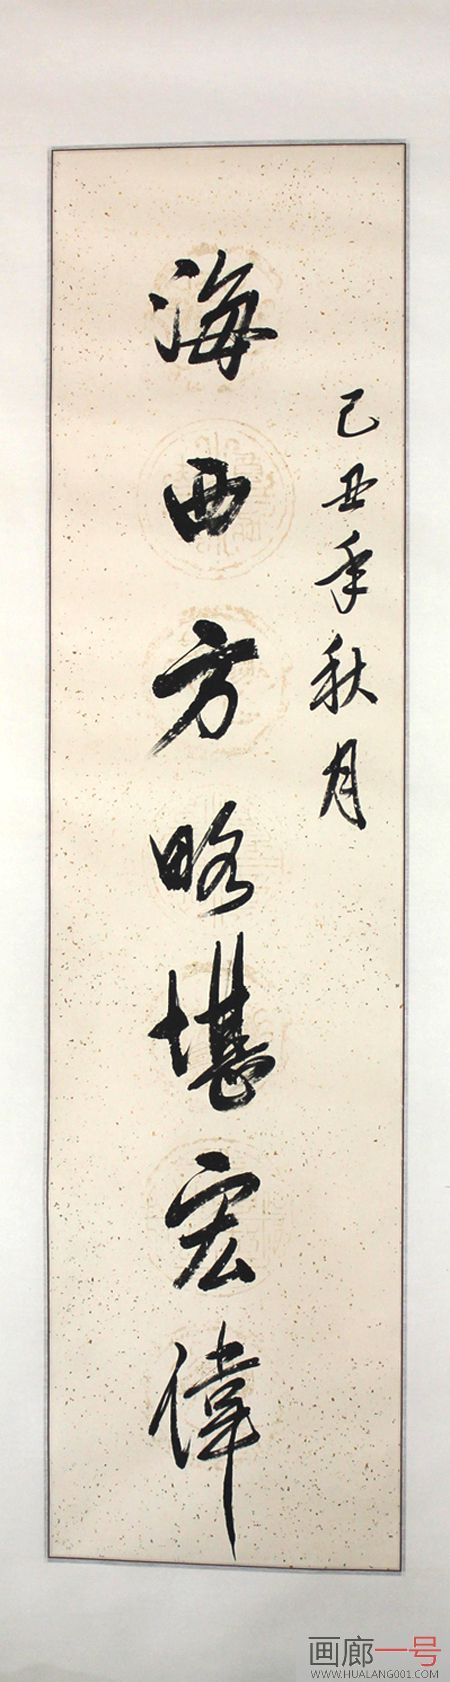 己丑年秋月
海西方略堪宏偉
画廊一号
WWW.HUALANG001.COM